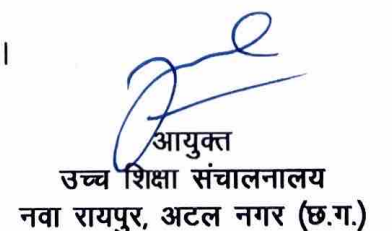 ।
आयुक्त
उच्च शिक्षा संचालनालय
नवा रायपुर, अटल नगर (छ.ग.)